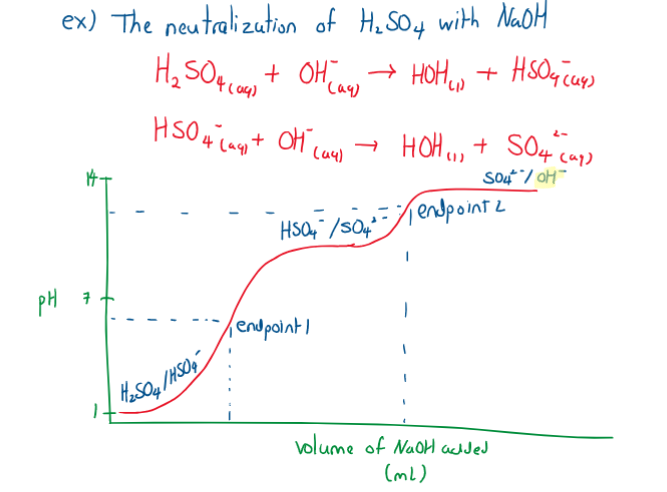 ex) The neutralization of H₂SO₄ with NaOH
H₂SO₄(aq) + OH⁻(aq) → HOH(l) + HSO₄⁻(aq)
HSO₄⁻(aq) + OH⁻(aq) → HOH(l) + SO₄²⁻(aq)
14
SO₄²⁻/OH⁻
HSO₄⁻/SO₄²⁻
endpoint 2
pH
7
endpoint 1
H₂SO₄/HSO₄⁻
1
Volume of NaOH added
(mL)